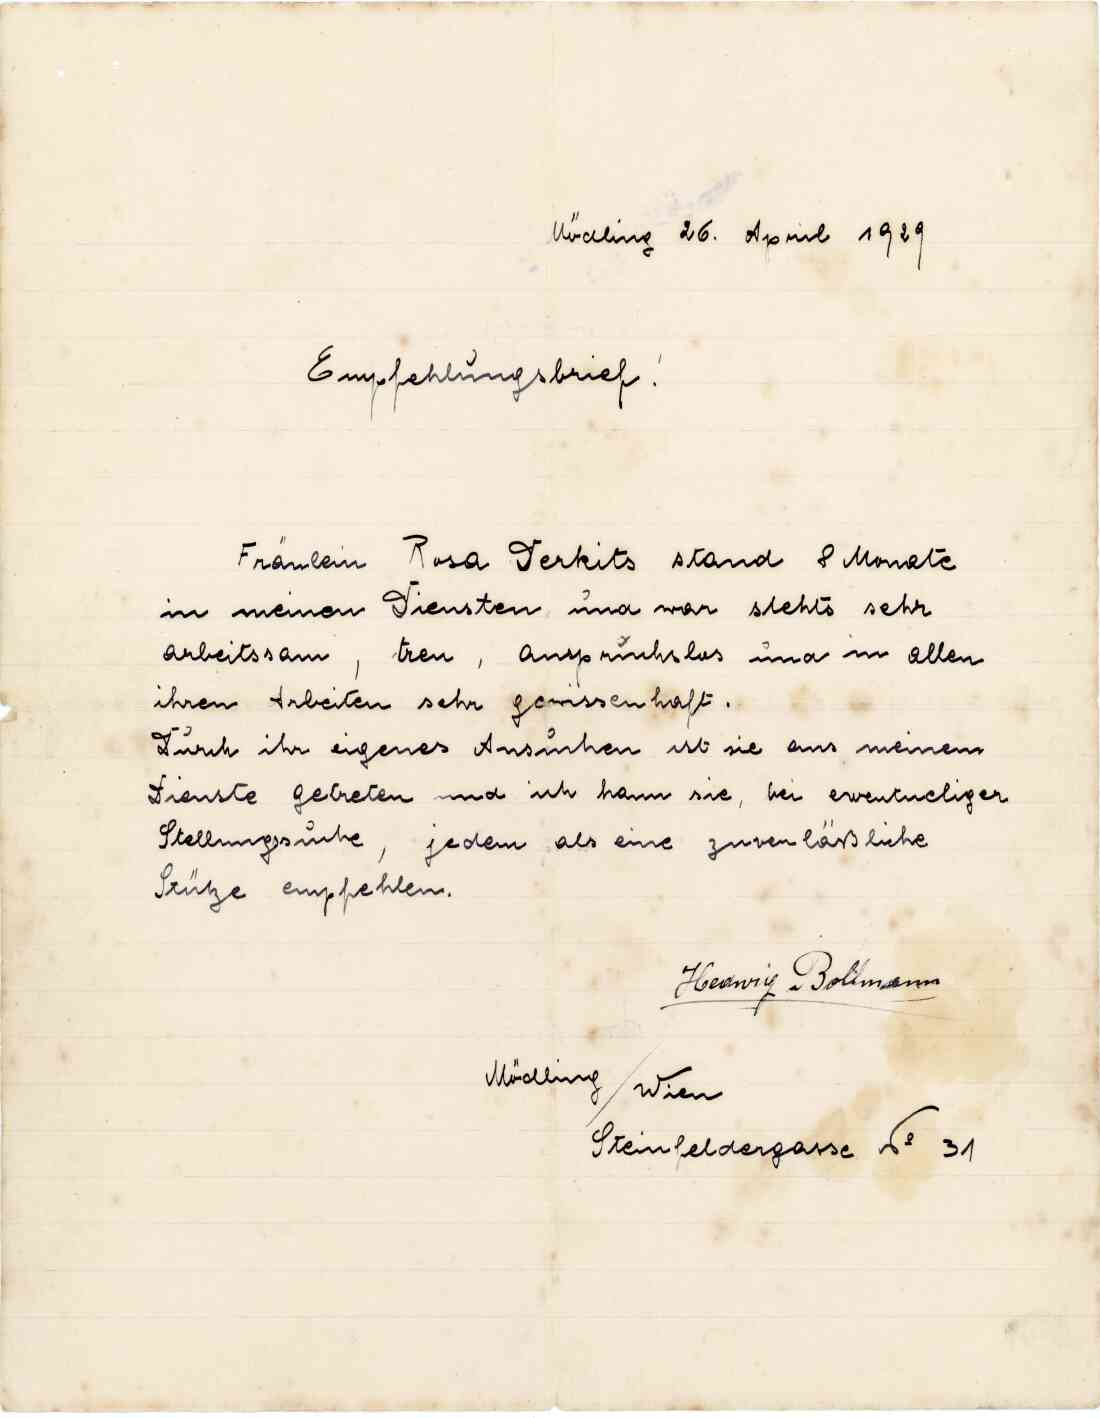 Mödling 26. April 1929
Empfehlungsbrief!
Fräulein Rosa Derkits stand 8 Monate
in meinen Diensten und war stehts sehr
arbeitssam, treu, anspruchslos und in allen
ihren Arbeiten sehr gewissenhaft.
Durch ihr eigenes Ansuchen ist sie aus meinem
Dienste getreten und ich kann sie, bei eventueliger
Stellungssuche, jedem als eine zuverläßliche
Stütze empfehlen.
Hedwig Bollmann
Mödling / Wien
Steinfeldergasse No 31